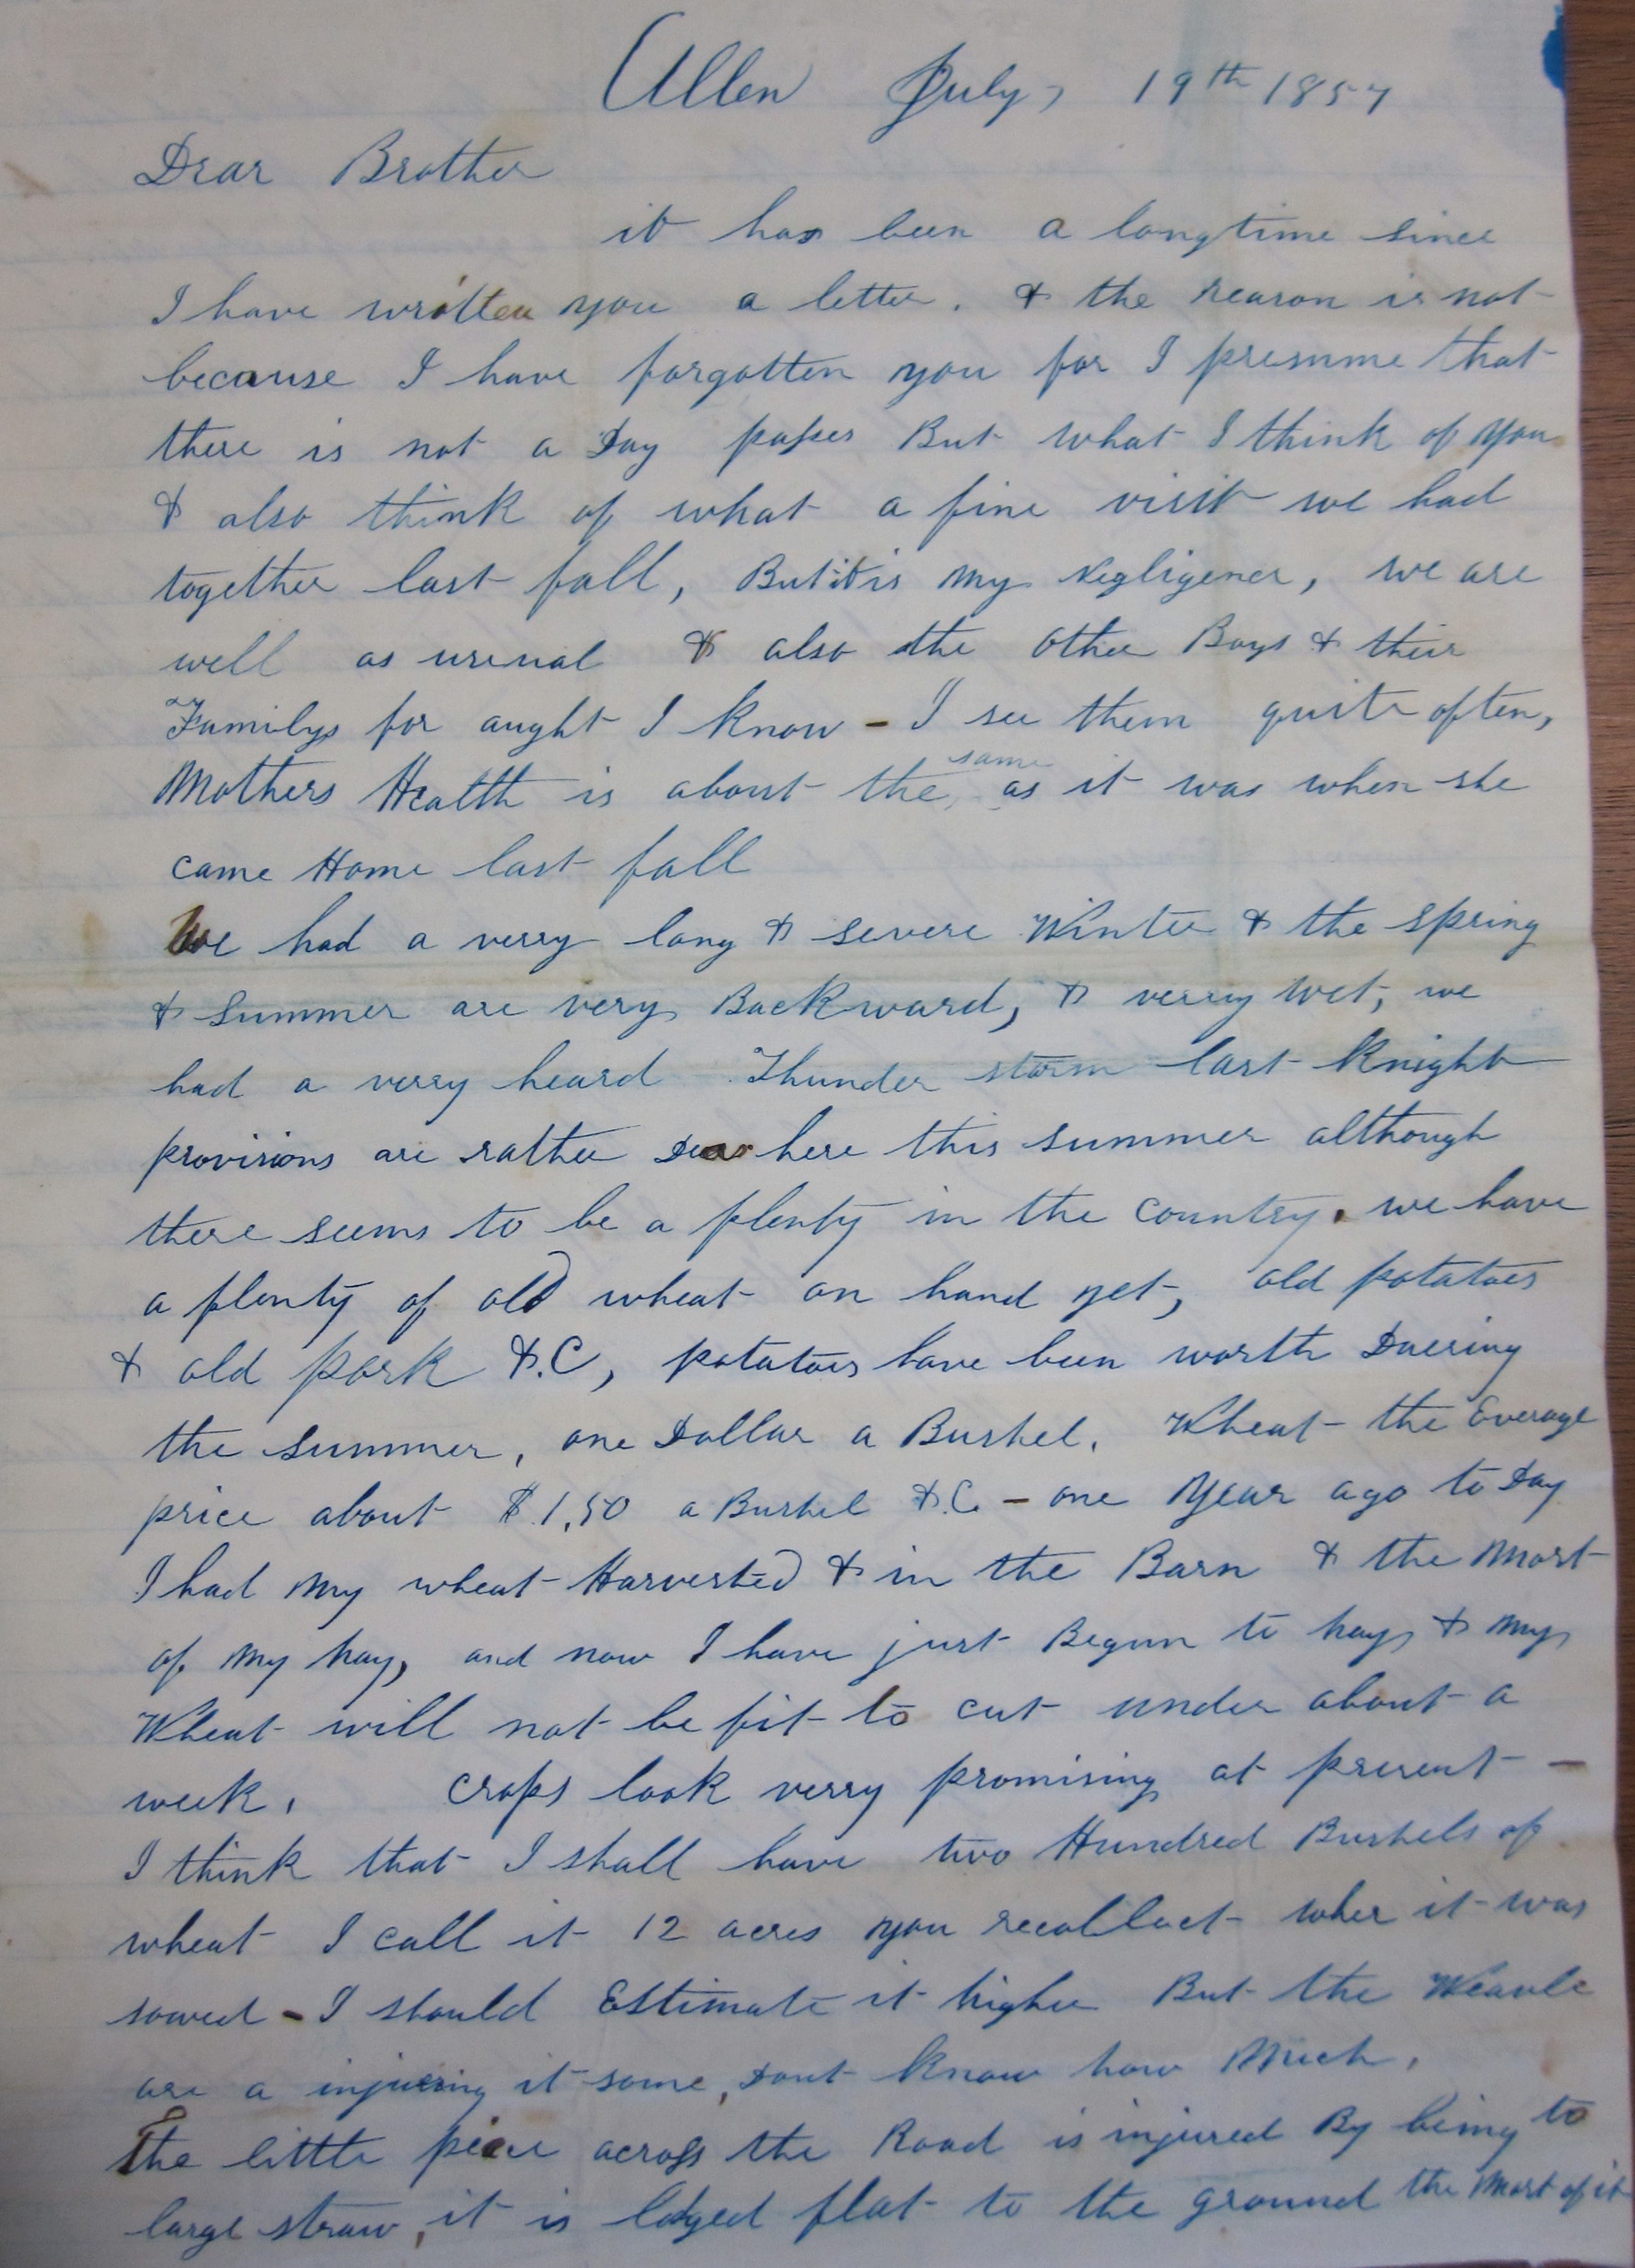 Allen July, 19th 1857
Dear Brother
it has been a longtime since
I have written you a letter. & the reason is not
because I have forgotten you for I presume that
there is not a Day passes But what I think of you
& also think of what a fine visit we had
together last fall, But it is my Negligence, we are
well as usenal & also the other Boys & their
Familys for aught I know - I see them quite often,
Mothers Health is about the same as it was when she
came Home last fall
We had a verry long & severe Winter & the spring
& summer are very Backward, & verry wet, we
had a verry heard Thunder storm last Knight
provisions are rather Dear here this summer although
there seems to be a plenty in the country. we have
a plenty of old wheat on hand yet, old potatoes
& old pork &.C, potatoes have been worth Duering
the summer, one Dollar a Bushel. Wheat the Everage
price about $1,50 a Bushel &.C. - one year ago to Day
I had my wheat Harvested & in the Barn & the Most
of My hay, and now I have just Begun to hay & my
Wheat will not be fit to cut under about a
week. crops look verry promising at present -
I think that I shall have two Hundred Bushels of
wheat I call it 12 acres you recollect wher it was
sowed - I should Estimate it higher But the Weavle
are a injuering it some, Dont Know how Much.
The little piece across the Road is injured By being to
large straw, it is lodged flat to the ground the Most of it